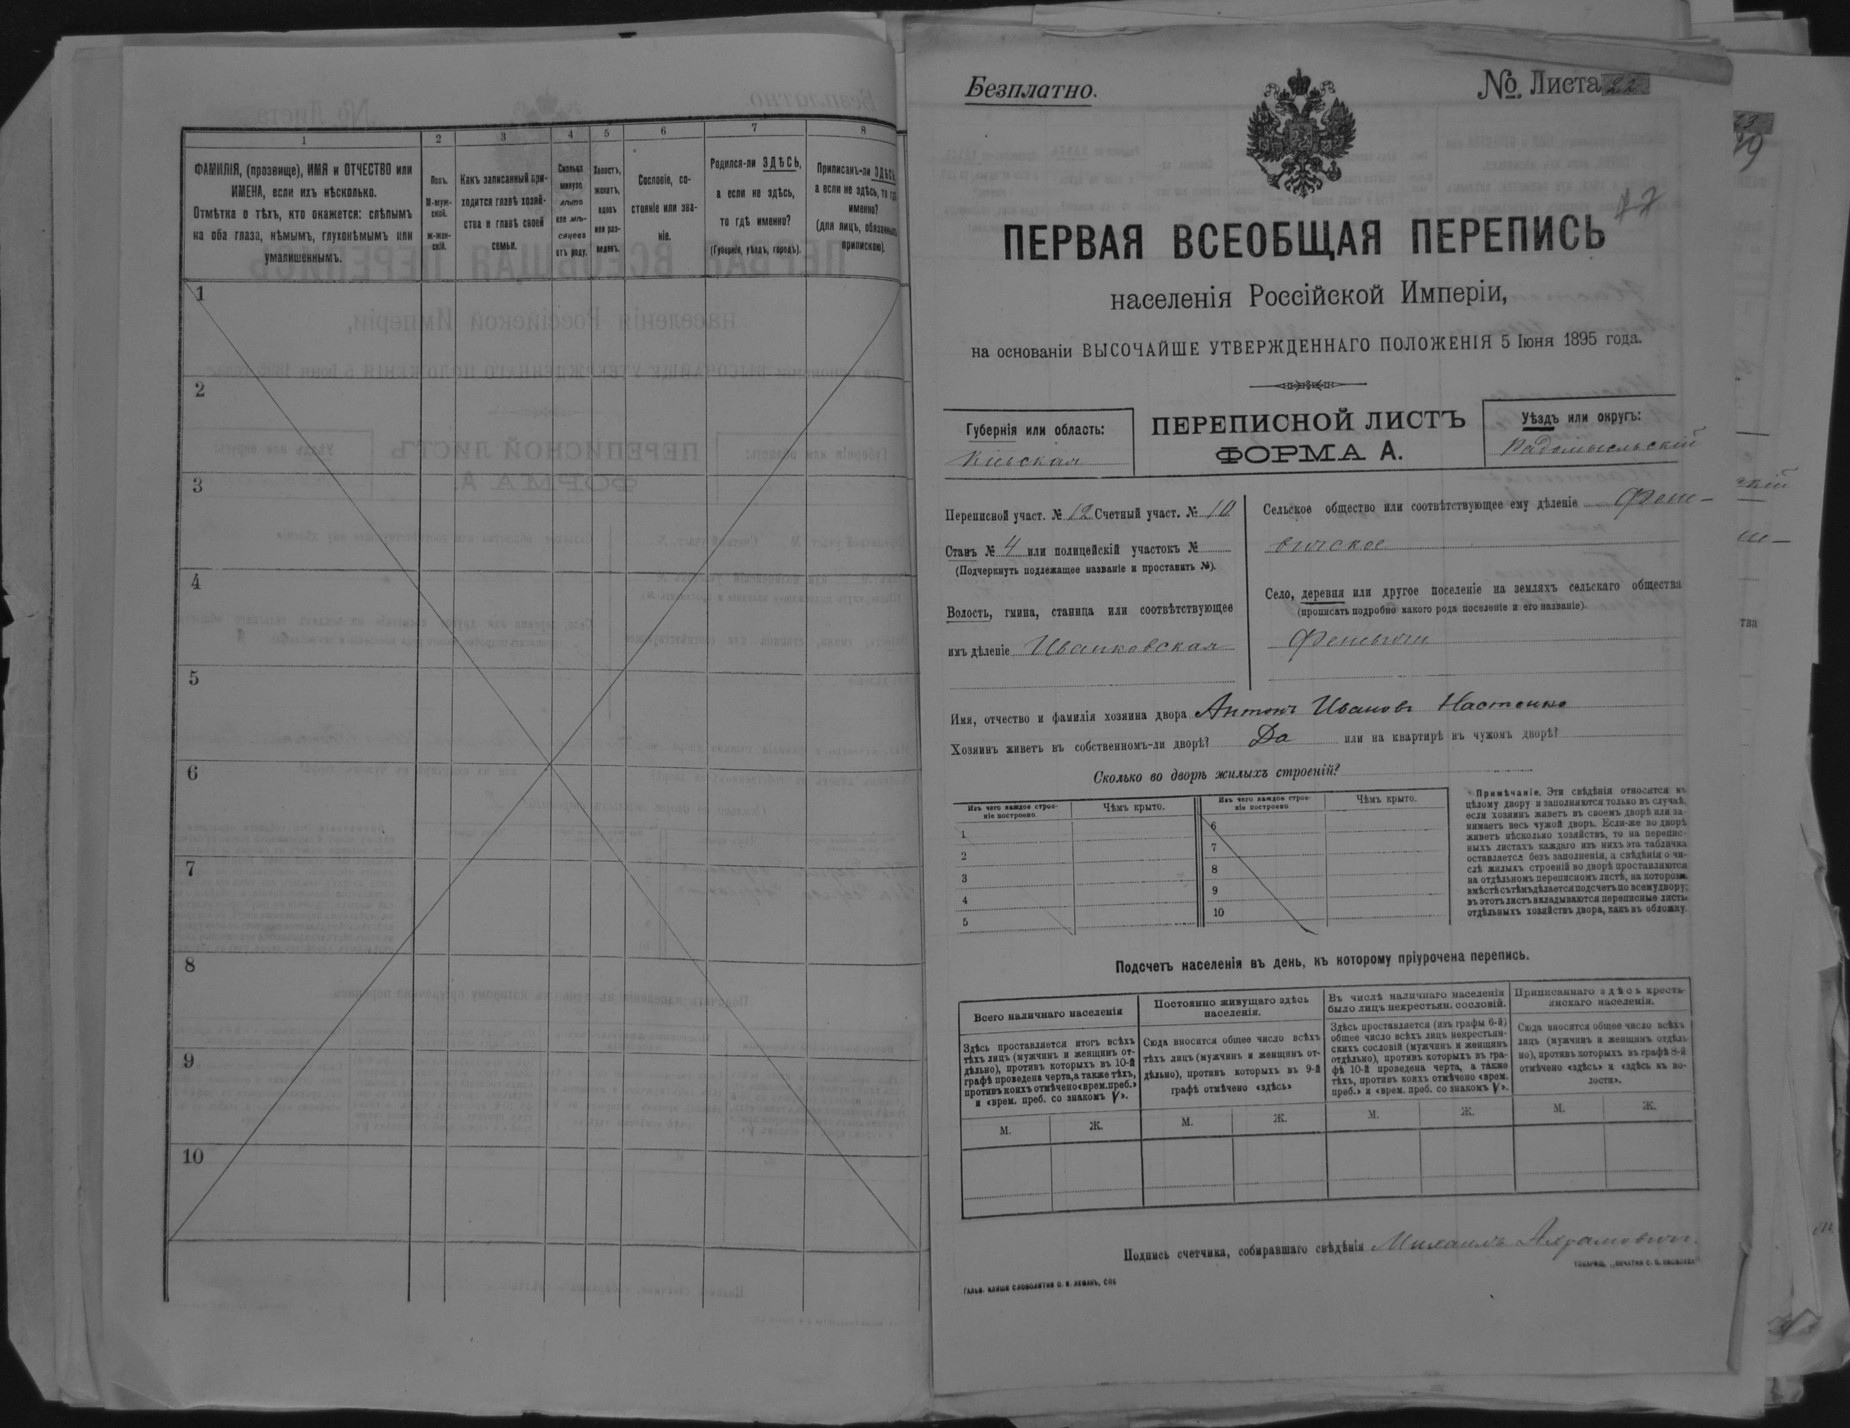 1
2
3
4
5
6
7
8
ФАМИЛІЯ, (прозвище), ИМЯ и ОТЧЕСТВО или
ИМЕНА, если ихъ нѣсколько.
Отмѣтка о тѣхъ, кто окажется: слѣпымъ
на оба глаза, нѣмымъ, глухонѣмымъ или
умалишеннымъ.
Полъ.
М-муж-
ской.
ж-жен-
скій.
Какъ записанный при-
ходится главѣ хозяй-
ства и главѣ своей
семьи.
Сколько
минуло
лѣтъ
или мѣ-
сяцевъ
отъ роду.
Холостъ,
женатъ,
вдовъ
или раз-
веденъ.
Сословіе, со-
стояніе или зва-
ніе.
Родился-ли ЗДѢСЬ,
а если не здѣсь,
то гдѣ именно?
(Губернія, уѣздъ, городъ).
Приписанъ-ли ЗДѢСЬ,
а если не здѣсь, то гдѣ
именно?
(для лицъ, обязанныхъ
припискою).
1
2
3
4
5
6
7
8
9
10
Безплатно.
№ Листа 22
ПЕРВАЯ ВСЕОБЩАЯ ПЕРЕПИСЬ
населенія Россійской Имперіи,
на основаніи ВЫСОЧАЙШЕ УТВЕРЖДЕННАГО ПОЛОЖЕНІЯ 5 Іюня 1895 года.
Губернія или область:
Кіевская
ПЕРЕПИСНОЙ ЛИСТЪ
ФОРМА А.
Уѣздъ или округъ:
Радомысльскій
Переписной участ. № 12 Счетный участ. № 10
Станъ № 4 или полицейскій участокъ №
(Подчеркнуть подлежащее названіе и проставить №).
Волость, гмина, станица или соотвѣтствующее
имъ дѣленіе Иванковская
Сельское общество или соотвѣтствующее ему дѣленіе
Село, деревня или другое поселеніе на земляхъ сельскаго общества
(прописать подробно какого рода поселеніе и его названіе)
Имя, отчество и фамилія хозяина двора Антонъ Ивановъ Настенко
Хозяинъ живетъ въ собственномъ-ли дворѣ? Да или на квартирѣ въ чужомъ дворѣ?
Сколько во дворѣ жилыхъ строеній?
Изъ чего каждое строе-
ніе построено
Чѣмъ крыто.
Изъ чего каждое строе-
ніе построено
Чѣмъ крыто.
1
2
3
4
5
6
7
8
9
10
Примѣчаніе. Эти свѣдѣнія относятся къ
цѣлому двору и заполняются только въ случаѣ,
если хозяинъ живетъ въ своемъ дворѣ или за-
нимаетъ весь чужой дворъ. Если-же во дворѣ
живетъ нѣсколько хозяйствъ, то на перепис-
ныхъ листахъ каждаго изъ нихъ эта табличка
оставляется безъ заполненія, а свѣдѣнія о чи-
слѣ жилыхъ строеній во дворѣ проставляются
на отдѣльномъ переписномъ листѣ, на которомъ
вмѣстѣ съ тѣмъ дѣлается подсчетъ по всему двору;
въ этотъ листъ вкладываются переписные листы
отдѣльныхъ хозяйствъ двора, какъ въ обложку.
Подсчетъ населенія въ день, къ которому пріурочена перепись.
Всего наличнаго населенія
Здѣсь проставляется итогъ всѣхъ
тѣхъ лицъ (мужчинъ и женщинъ от-
дѣльно), противъ которыхъ въ 10-й
графѣ проведена черта, а также тѣхъ,
противъ коихъ отмѣчено «врем. преб.»
и «врем. преб. со знакомъ V».
Постоянно живущаго здѣсь
населенія.
Сюда вносится общее число всѣхъ
тѣхъ лицъ (мужчинъ и женщинъ от-
дѣльно), противъ которыхъ въ 9-й
графѣ отмѣчено «здѣсь»
Въ числѣ наличнаго населенія
было лицъ некрестьян. сословій.
Здѣсь проставляется (изъ графы 6-й)
общее число всѣхъ лицъ некрестьян-
скихъ сословій (мужчинъ и женщинъ
отдѣльно), противъ которыхъ въ гра-
фѣ 10-й проведена черта, а также
тѣхъ, противъ коихъ отмѣчено «врем.
преб.» и «врем. преб. со знакомъ V».
Приписаннаго здѣсь кресть-
янскаго населенія.
Сюда вносится общее число всѣхъ
лицъ (мужчинъ и женщинъ отдѣль-
но), противъ которыхъ въ графѣ 8-й
отмѣчено «здѣсь» и «здѣсь въ во-
лости».
М.
Ж.
М.
Ж.
М.
Ж.
М.
Ж.
Подпись счетчика, собиравшаго свѣдѣнія Михаилъ Ахрамовичъ